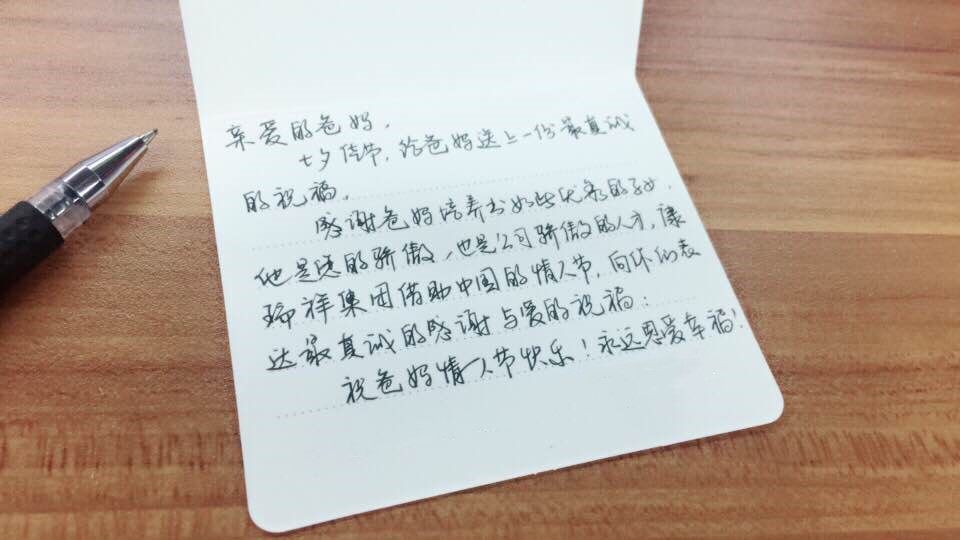 亲爱的爸妈,
七夕佳节,给爸妈送上一份最真诚
的祝福。
感谢爸妈培养出如此优秀的子女,
他是您的骄傲,也是公司骄傲的人才,康
瑞祥集团借助中国的情人节,向你们表
达最真诚的感谢与爱的祝福:
祝爸妈情人节快乐!永远恩爱幸福!